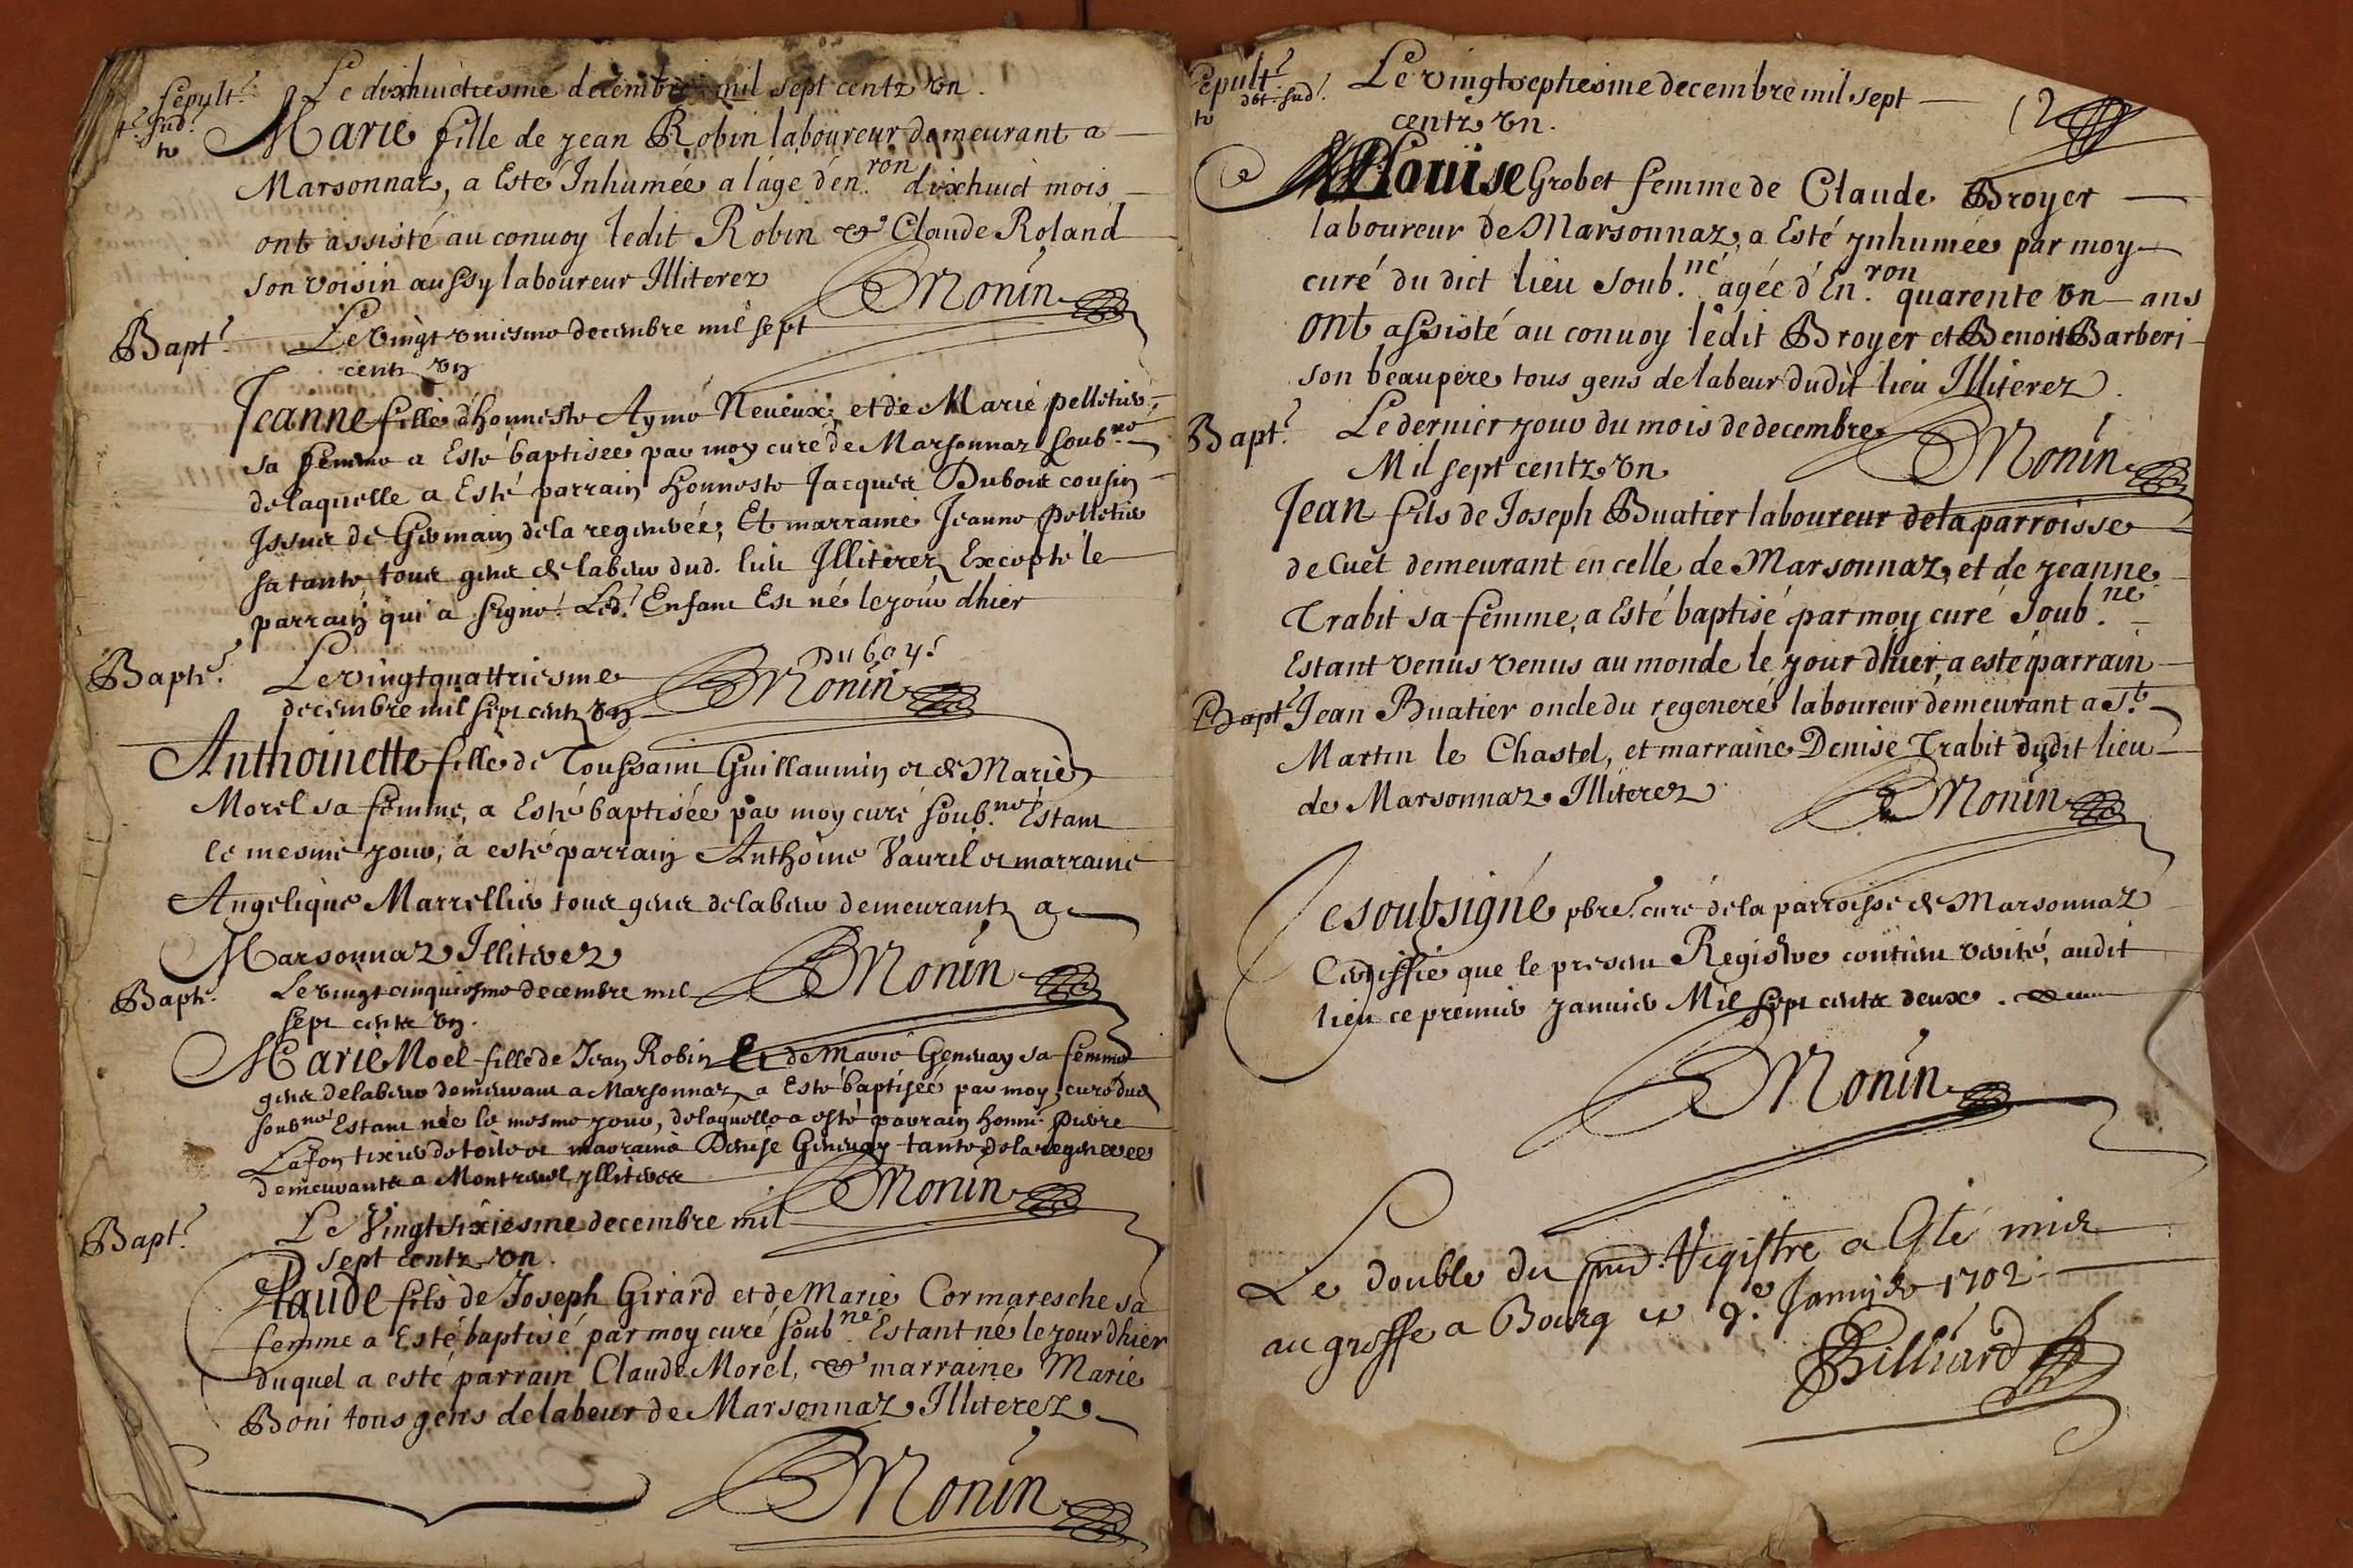 Sepult.
Le dixhuictiesme decembre mil sept centz vn.
Marie fille de jean Robin laboureur demeurant a
Marsonnaz, a Esté Inhumée a l'age d'en.ron dixhuict mois
ont assisté au conuoy ledit Robin & Claude Roland
son voisin aussy laboureur Illiterez
Monin
Bapt.
Le vingt vniesme decembre mil sept
centz vn
Jeanne fille d'honneste Aymé Neueux, et de Marie pelletier
sa femme a Esté baptisée par moy curé de Marsonnaz soub.né
de laquelle a Esté parrain honneste Jacques Dubois cousin
Issus de Germain de la regenerée, Et marraine Jeanne Pelletier
sa tante, tous gens de labeur dud. lieu Illiterez Excepté le
parrain qui a signé. Led. Enfant Est né le jour d'hier
Duboys
Monin
Bapt.
Le vingtquattriesme
decembre mil sept centz vn
Anthoinette fille de Toussaint Guillaumin et de Marie
Morel sa femme, a Esté baptisée par moy curé soub.né Estant
le mesme jour, a esté parrain Anthoine Vauril et marraine
Angelique Marrellier tous gens de labeur demeurantz a
Marsonnaz Illiterez
Monin
Bapt.
Le vingt cinquiesme decembre mil
sept centz vn.
Marie Noel fille de Jean Robin Et de Marie Geneuay sa femme
gens de labeur demeurant a Marsonnaz a Esté baptisée par moy curé dud
soub.né Estant née le mesme jour, de laquelle a esté parrain honn. Pierre
Lafon tixier de toile et marraine Denise Geneuay tante de la regenerée
demeurants a Montreuel Illiterez
Monin
Bapt.
Le Vingtsixiesme decembre mil
sept centz vn.
Claude fils de Joseph Girard et de Marie Cormaresche sa
femme a Esté baptisé par moy curé soub.né Estant né le jour d'hier
duquel a esté parrain Claude Morel, & marraine Marie
Boni tous gens de labeur de Marsonnaz Illiterez
Monin
Sepult.
Le vingtseptiesme decembre mil sept
centz vn.
Louïse Grobet femme de Claude Broyer
laboureur de Marsonnaz, a Esté jnhumée par moy
curé du dict lieu soub.né agée d'En.ron quarente vn ans
ont assisté au conuoy ledit Broyer et Benoit Barberi
son beaupere tous gens de labeur dudit lieu Illiterez.
Monin
Bapt.
Le dernier jour du mois de decembre
Mil sept centz vn
Jean fils de Joseph Buatier laboureur de la parroisse
de Cuet demeurant en celle de Marsonnaz, et de jeanne
Trabit sa femme, a Esté baptisé par moy curé soub.né
Estant venus venus au monde le jour d'hier, a esté parrain
Bapt.
Jean Buatier oncle du regeneré laboureur demeurant a St.
Martin le Chastel, et marraine Denise Trabit dudit lieu
de Marsonnaz Illiterez
Monin
Je soubsigné pbre. curé de la parroisse de Marsonnaz
Certiffie que le present Registre contient verité, audit
lieu ce premier januier Mil sept centz deux.
Monin
Le double du pnt. Registre a Esté mis
au greffe a Bourg ce 9e. Januier 1702
Billiard